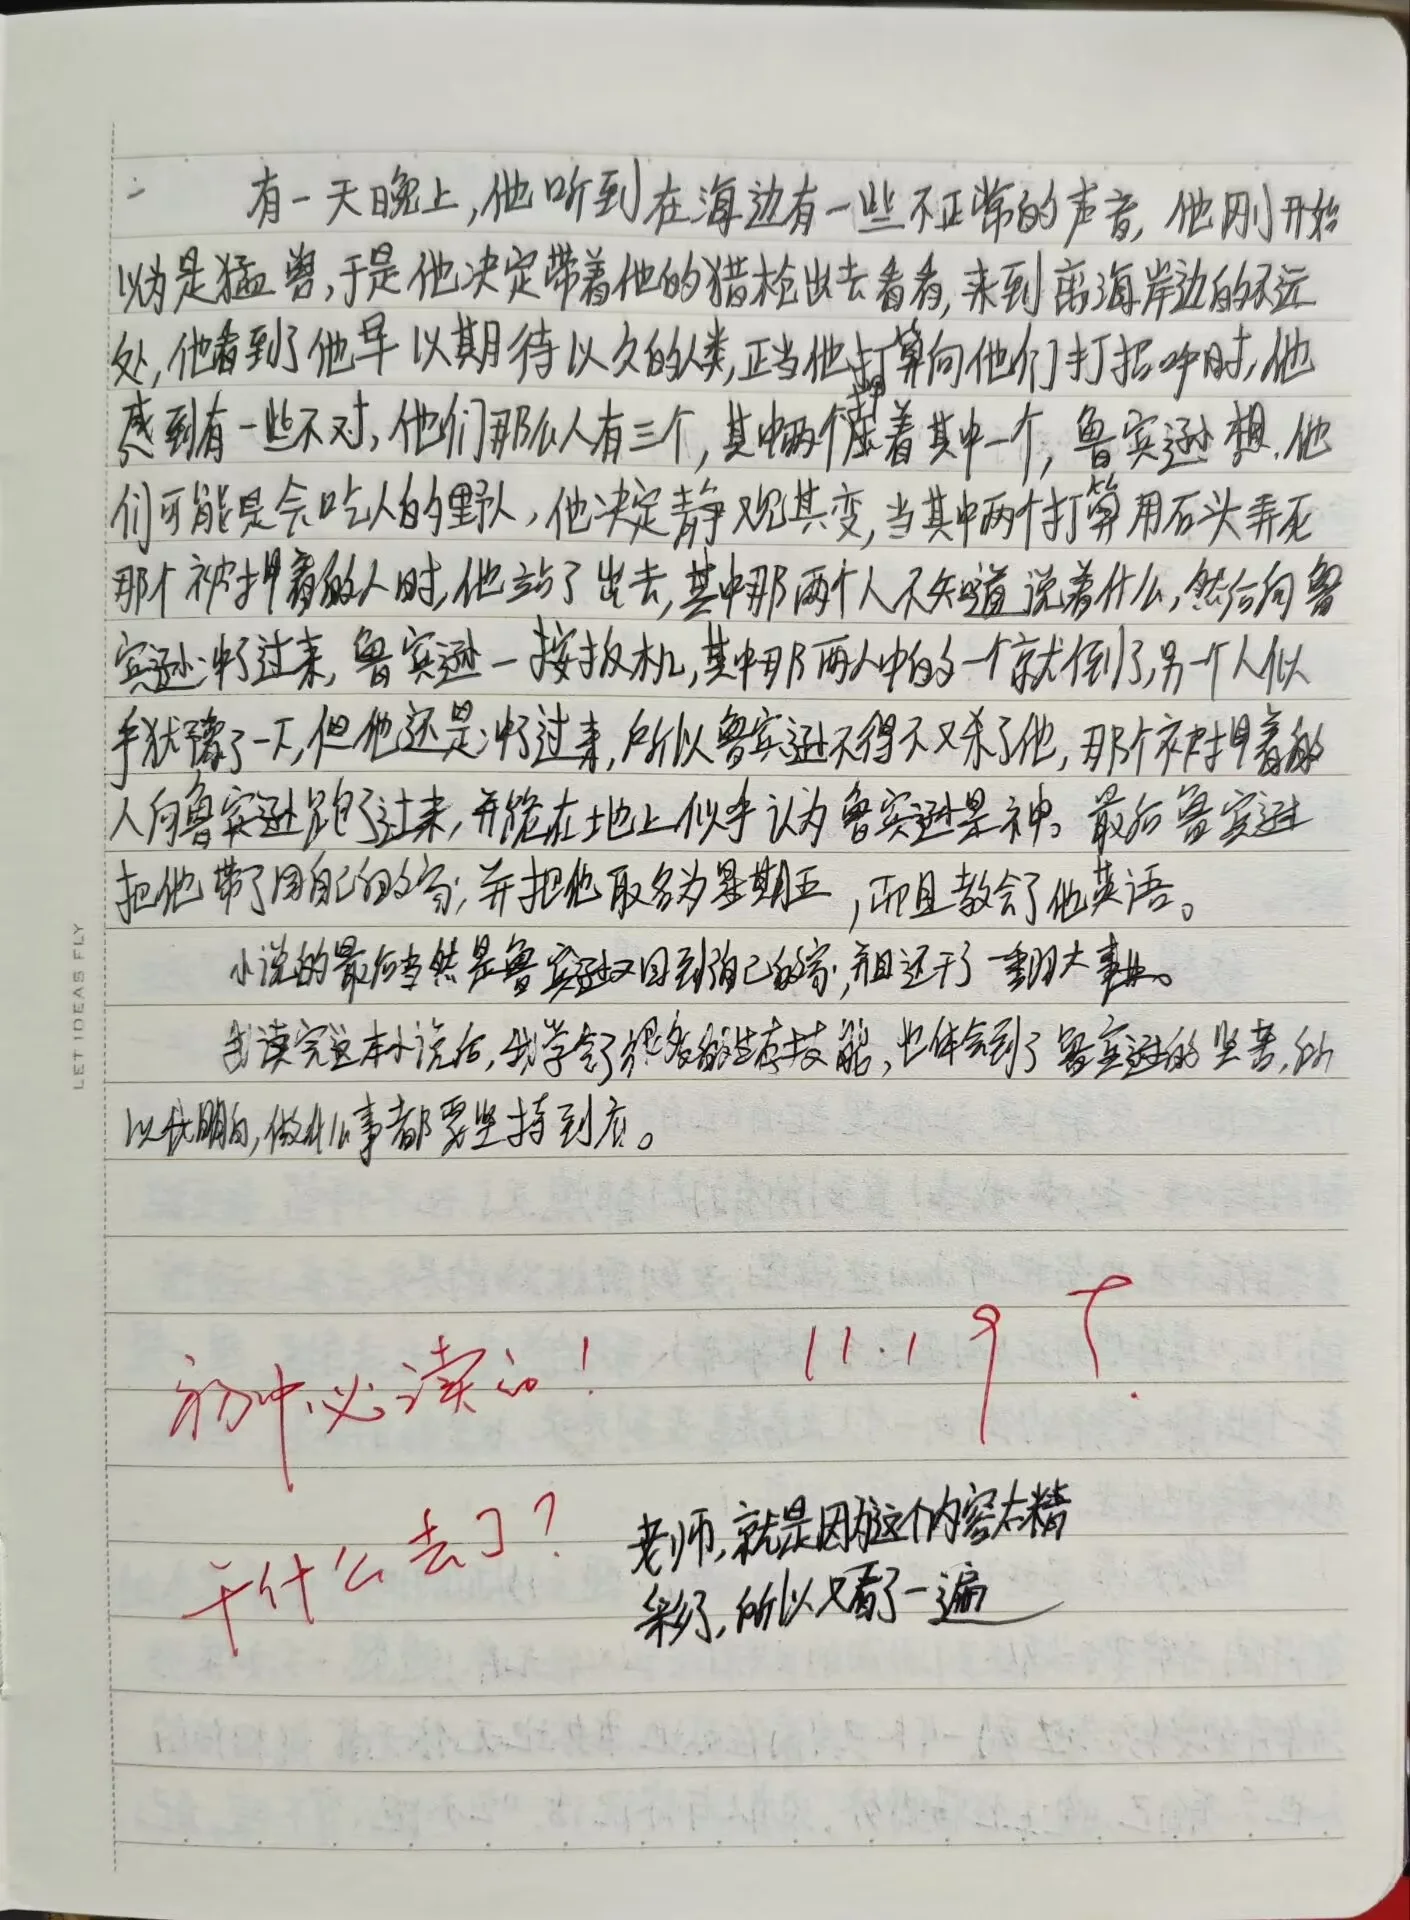 有一天晚上,他听到在海边有一些不正常的声音,他刚开始
以为是猛兽,于是他决定带着他的猎枪出去看看,来到离海岸边的不远
处,他看到了他早以期待以久的人类,正当他打算向他们打招呼时,他
感到有一些不对,他们那么人有三个,其中两个押着其中一个,鲁宾逊想.他
们可能是会吃人的野人,他决定静观其变,当其中两个打算用石头弄死
那个被押着的人时,他站了出去,其中那两个人不知道说着什么,然后向鲁
宾逊冲了过来,鲁宾逊一按扳机,其中那两人中的一个就倒了,另一个人似
乎犹豫了一下,但他还是冲了过来,所以鲁宾逊不得不又杀了他,那个被押着的
人向鲁宾逊跑了过来,并跪在地上似乎认为鲁宾逊是神。最后鲁宾逊
把他带了回自己的家,并把他取名为星期五,而且教会了他英语。
小说的最后当然是鲁宾逊又回到自己的家,并且还干了一番大事业。
我读完这本小说后,我学会了很多的生存技能,也体会到了鲁宾逊的坚苦,所
以我明白,做什么事都要坚持到底。
初中必读的!
11.19
干什么去了?
老师,就是因为这个内容太精
彩了,所以又看了一遍
LET IDEAS FLY